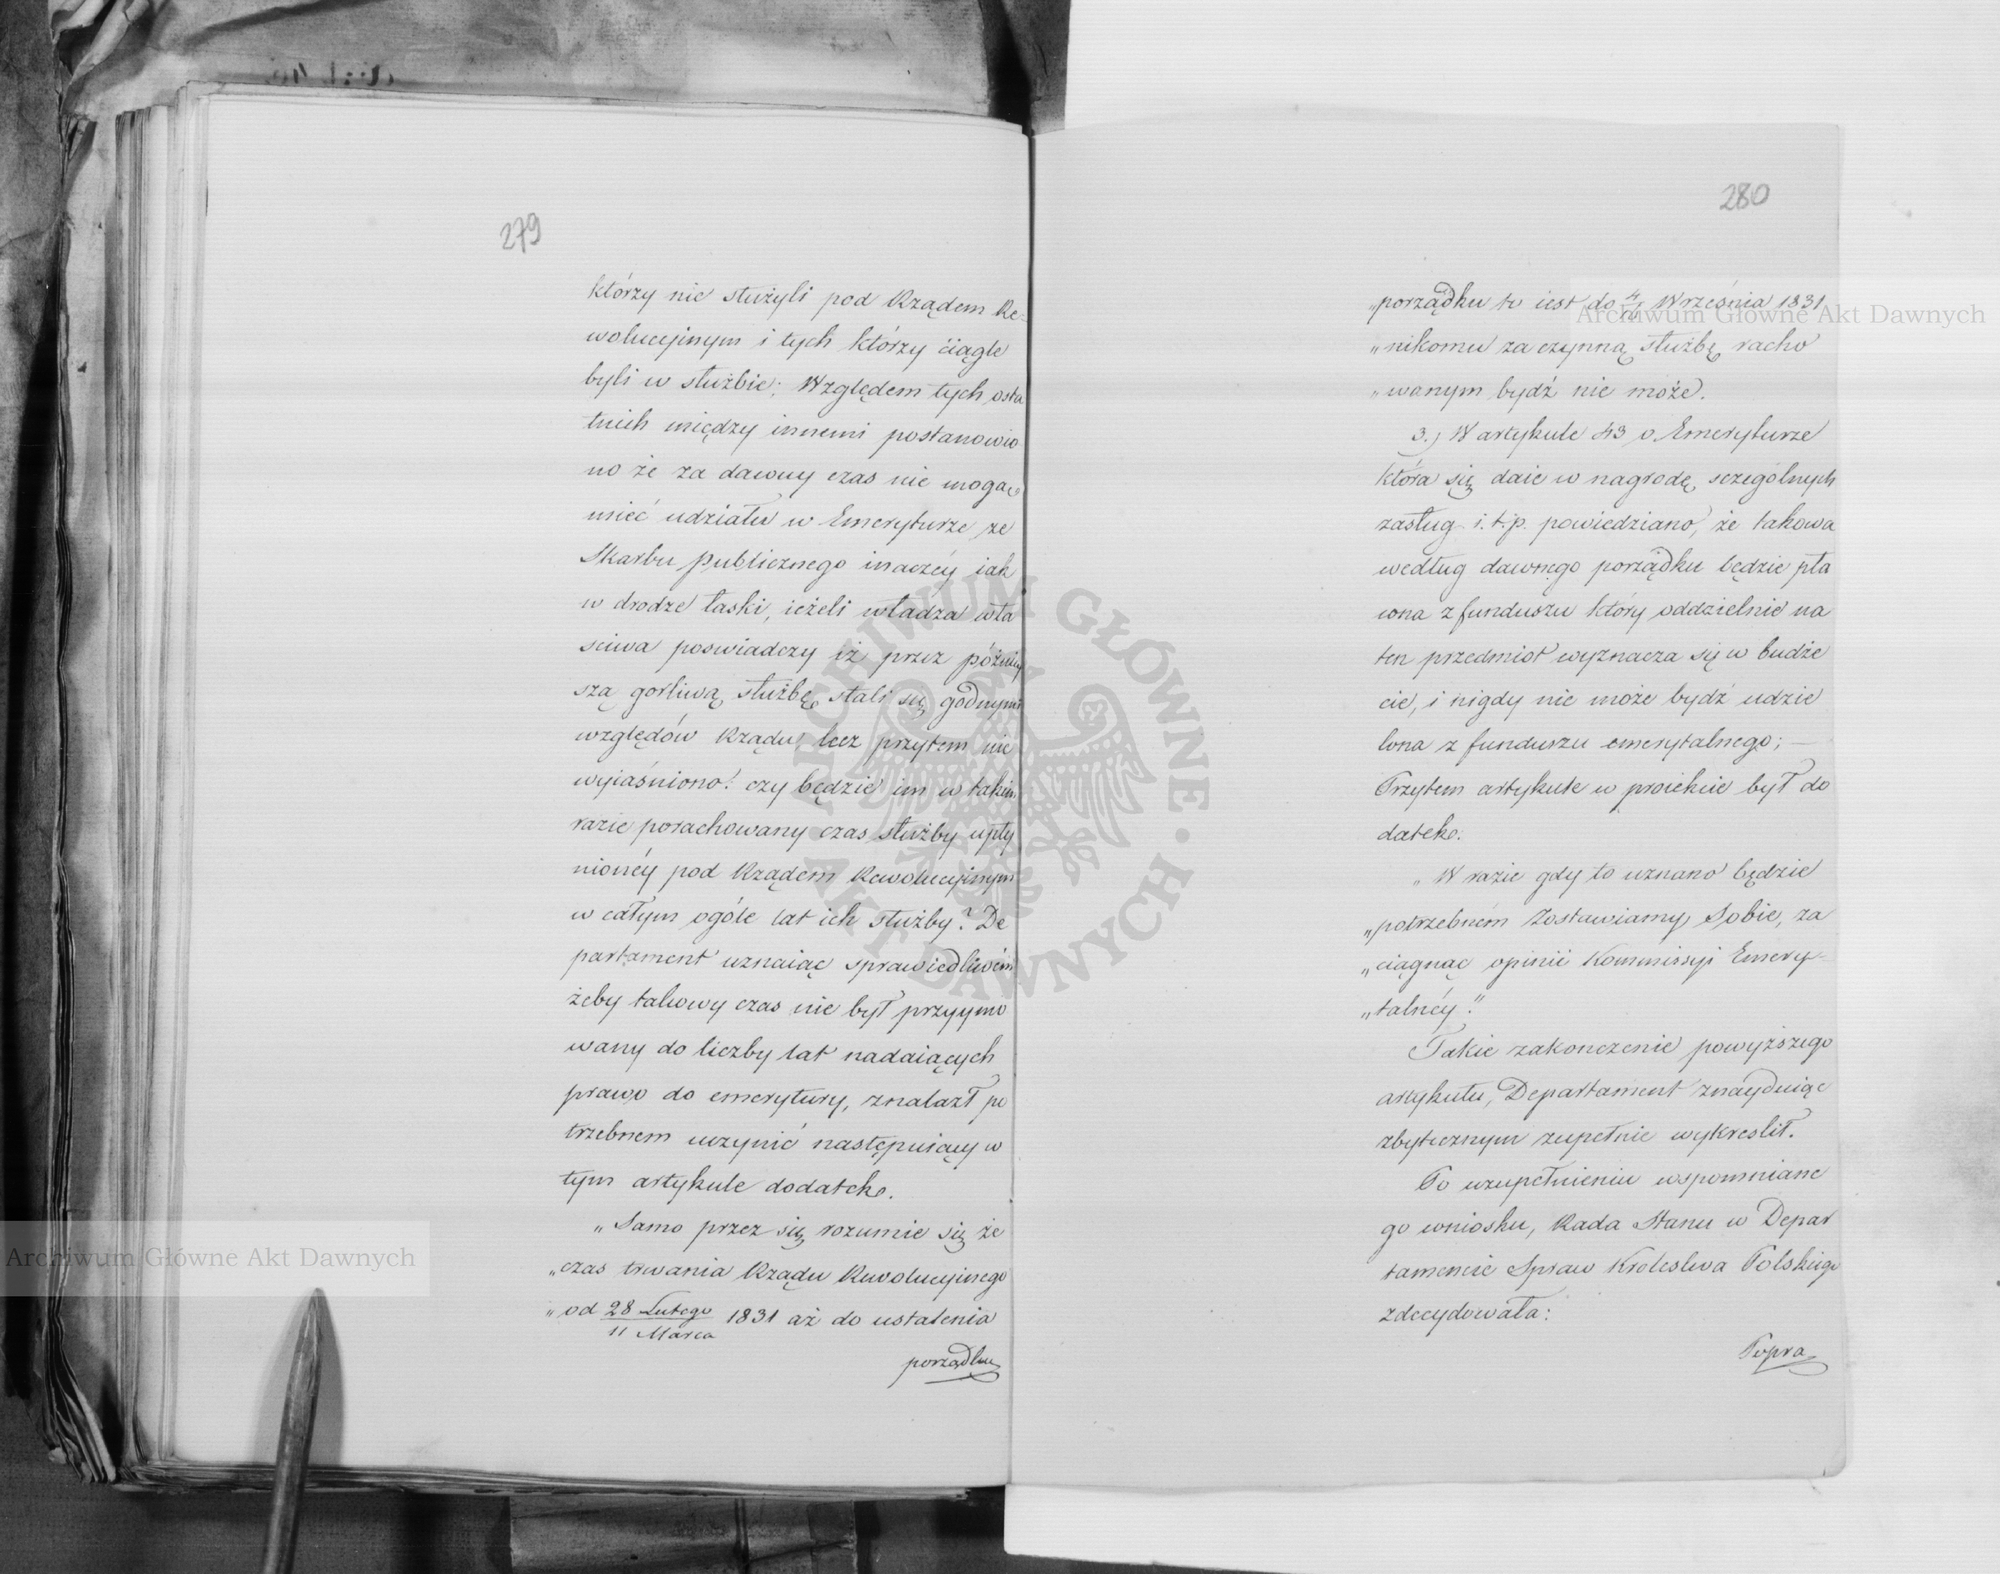 279
którzy nie służyli pod Rządem Re-
wolucyinym i tych którzy ciągle
byli w służbie; Względem tych osta
tnich między innemi postanowio
no że za dawny czas nie mogą
mieć udziału w Emeryturze ze
Skarbu Publicznego inaczéy iak
w drodze łaski, ieżeli władza wła
sciwa poswiadczy iż przez późniey
szą gorliwą służbę stali się godnymi
względów Rządu, lecz przytem nie
wyiaśniono: czy będzie im w takim
razie porachowany czas służby upły
nionéy pod Rządem Rewolucyinym
w całym ogóle lat ich służby? De
partament uznaiąc sprawiedliwém
żeby takowy czas nie był przyymo
wany do liczby lat nadaiących
prawo do emerytury, znalazł po
trzebnem uczynić następuiący w
tym artykule dodatek.
„Samo przez się rozumie się że
„czas trwania Rządu Rewolucyinego
„od 28 Lutego / 11 Marca 1831 aż do ustalenia
porządku
280
„porządku to iest do Września 1831
„nikomu za czynną służbę racho
„wanym bydź nie może.
3.) W artykule 43 o Emeryturze
która się daie w nagrodę sczególnych
zasług i. t. p. powiedziano, że takowa
według dawnego porządku będzie pła
cona z funduszu który oddzielnie na
ten przedmiot wyznacza się w budże
cie, i nigdy nie może bydź udzie
lona z funduszu emerytalnego; —
Przytem artykule w proiekcie był do
datek.
„W razie gdy to uznano będzie
„potrzebném zostawiamy Sobie, za
„ciągnąć opinii Kommissyi Emery-
„talnéy."
Takie zakonczenie powyższego
artykułu, Departament znayduiąc
zbytecznym zupełnie wykreslił.
Po uzupełnieniu wspomniane
go wniosku, Rada Stanu w Depar
tamencie Spraw Krolestwa Polskiego
zdecydowała:
Popra
Archiwum Główne Akt Dawnych
Archiwum Główne Akt Dawnych
ARCHIWUM GŁÓWNE AKT DAWNYCH